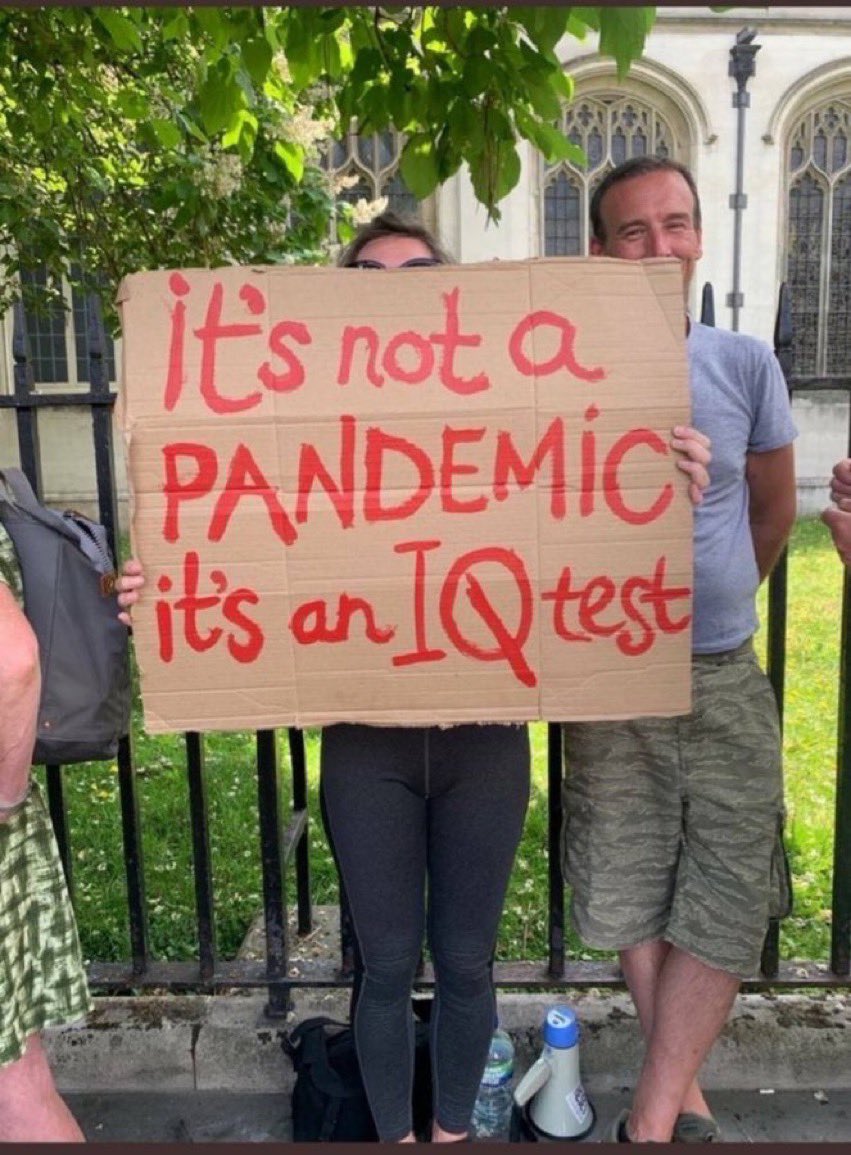 it's not a
PANDEMIC
it's an IQ test